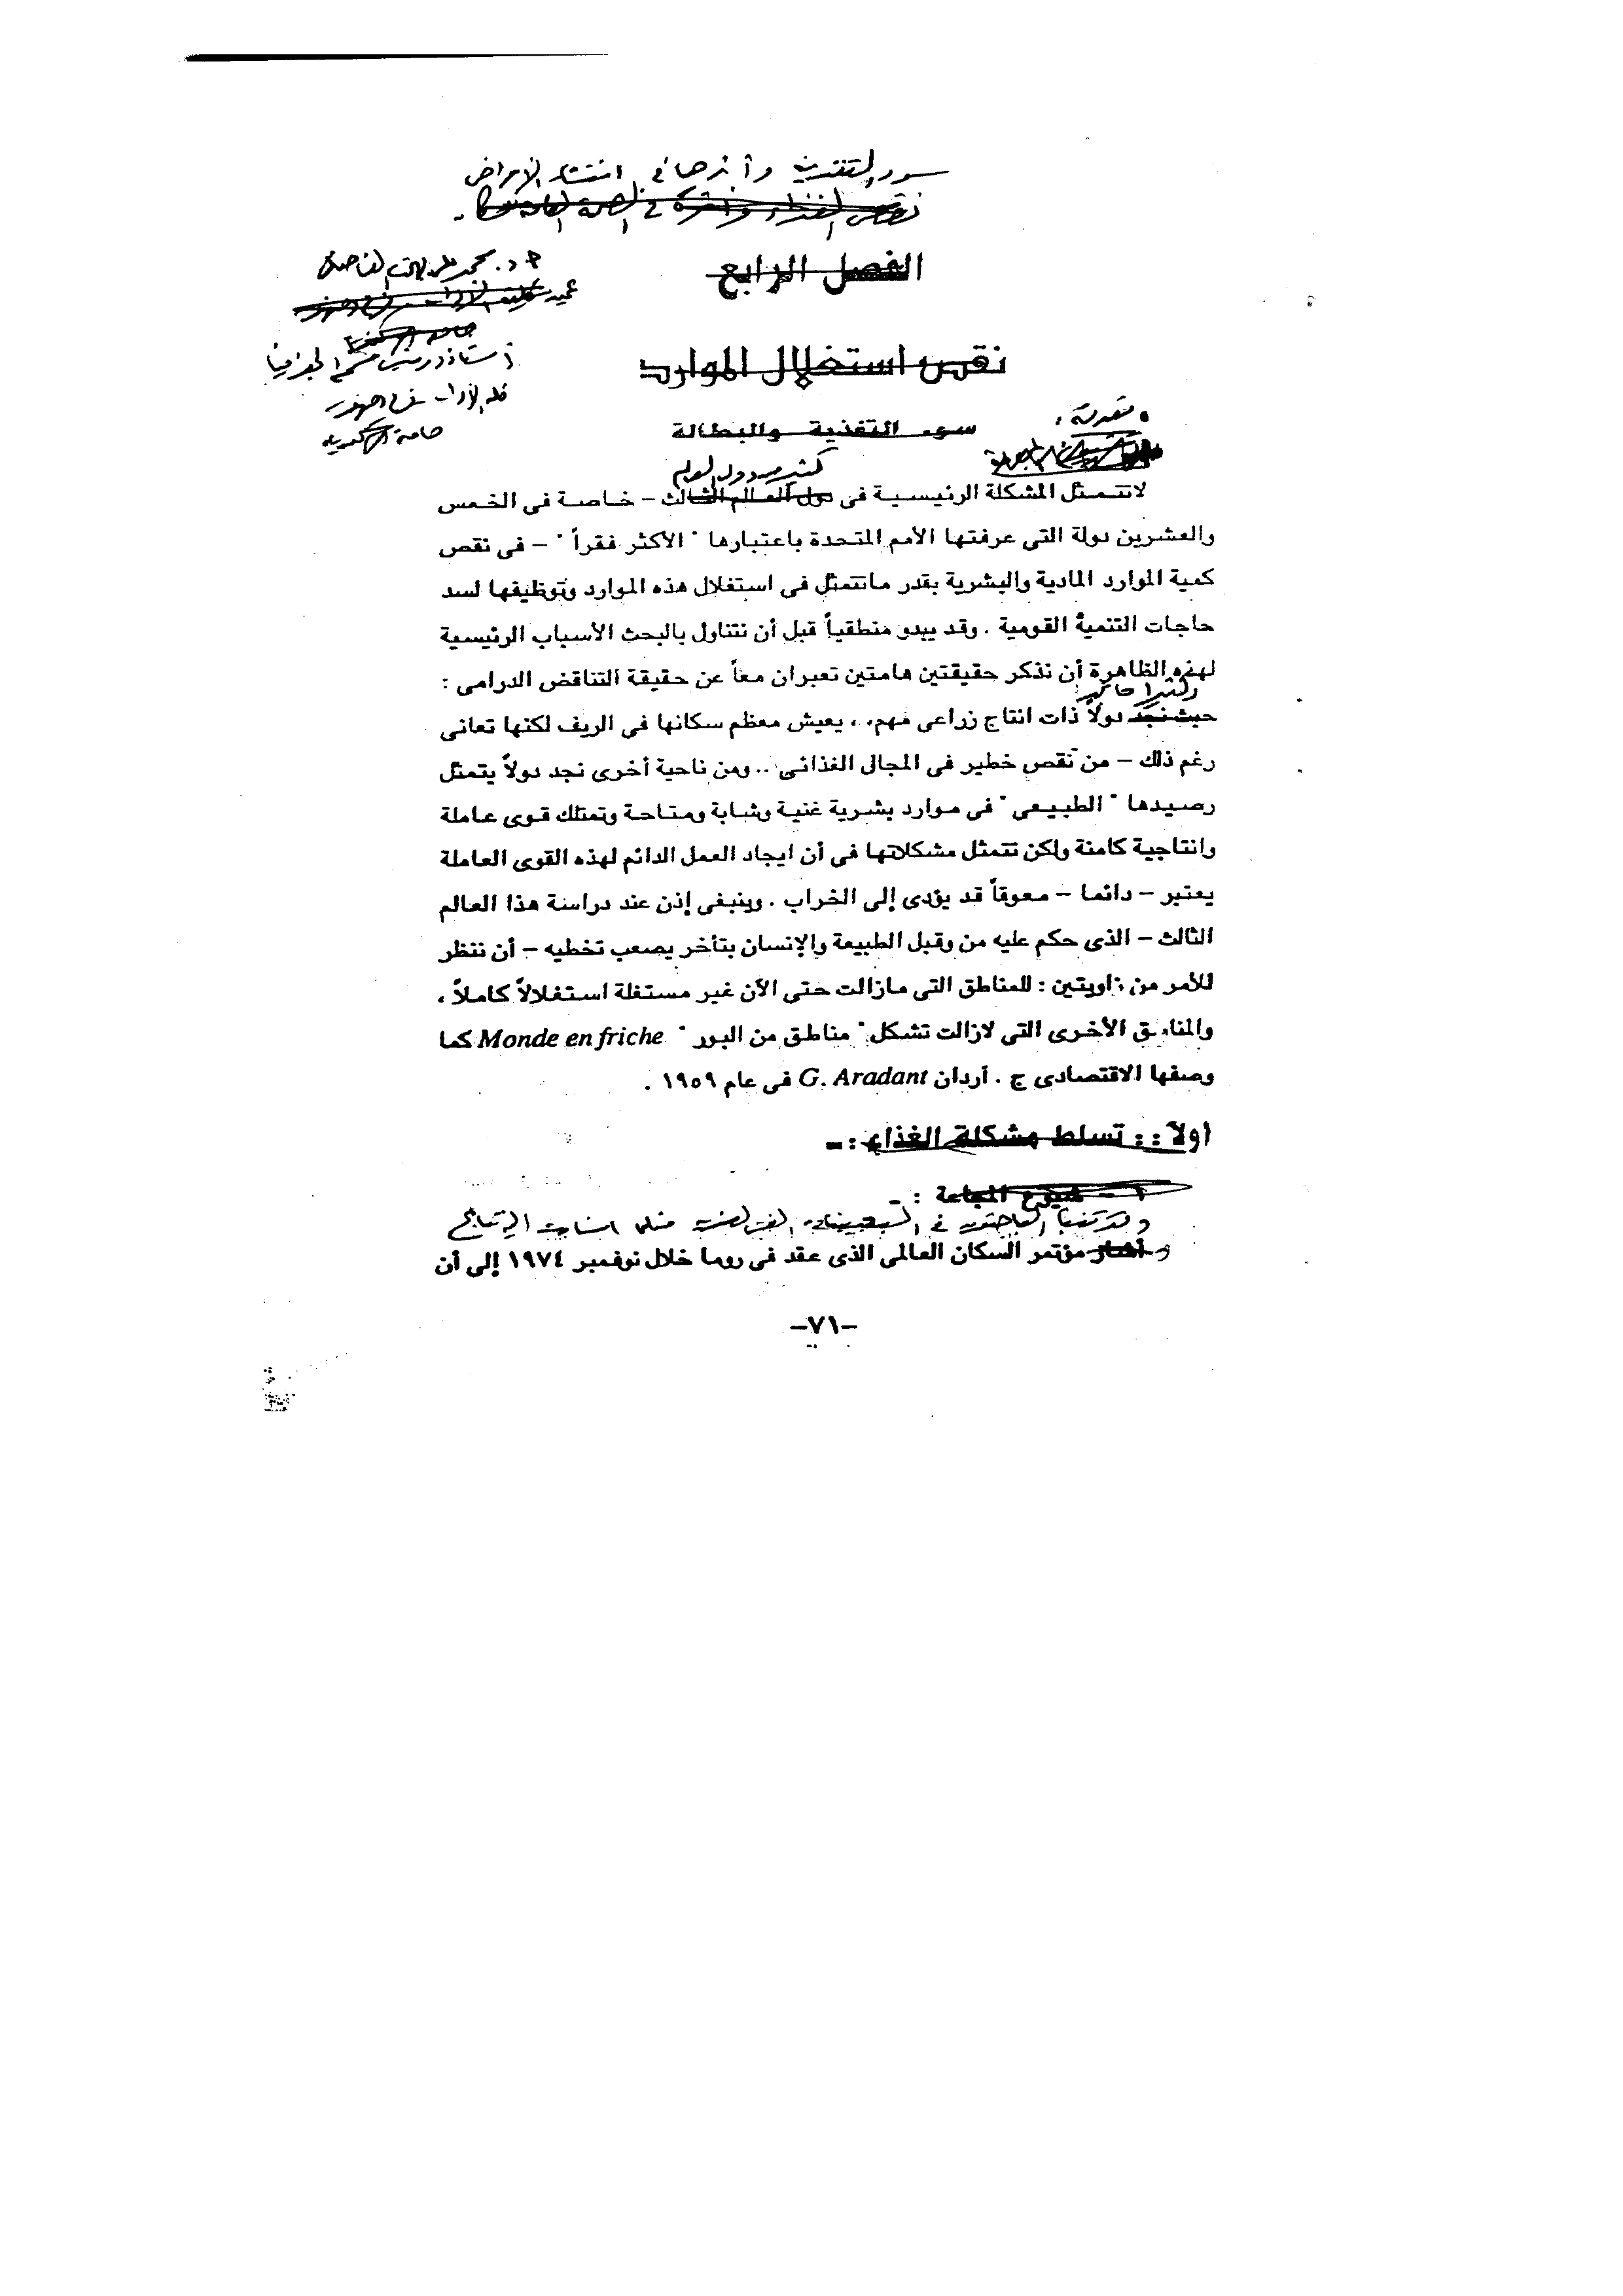 سوء التغذية وأثرها فى انتشار الأمراض
نقص الغذاء وأثره فى الصحة العامة
الفصل الرابع
أ.د. محمد
عميد كلية الآداب
أستاذ ورئيس قسم الجغرافيا
كلية الآداب فرع دمنهور
جامعة الإسكندرية
نقص استغلال الموارد
مقدمة :
سوء التغذية والبطالة
كثير من دول العالم
لاتتمثل المشكلة الرئيسية فى دول العالم الثالث – خاصة فى الخمس
والعشرين دولة التى عرفتها الأمم المتحدة باعتبارها " الأكثر فقراً " – فى نقص
كمية الموارد المادية والبشرية بقدر ماتتمثل فى استغلال هذه الموارد وتوظيفها لسد
حاجات التنمية القومية . وقد يبدو منطقياً قبل أن نتناول بالبحث الأسباب الرئيسية
لهذه الظاهرة أن نذكر حقيقتين هامتين تعبران معاً عن حقيقة التناقض الدرامى :
وكثيرا ما نجد
حيث نجد دولاً ذات انتاج زراعى مهم، ، يعيش معظم سكانها فى الريف لكنها تعانى
رغم ذلك – من نقص خطير فى المجال الغذائى .. ومن ناحية أخرى نجد دولاً يتمثل
رصيدها " الطبيعى " فى موارد بشرية غنية وشابة ومتاحة وتمتلك قوى عاملة
وانتاجية كامنة ولكن تتمثل مشكلاتها فى أن ايجاد العمل الدائم لهذه القوى العاملة
يعتبر – دائما – معوقاً قد يؤدى إلى الخراب . وينبغى إذن عند دراسة هذا العالم
الثالث – الذى حكم عليه من وقبل الطبيعة والإنسان بتأخر يصعب تخطيه – أن ننظر
للأمر من زاويتين : للمناطق التى مازالت حتى الآن غير مستغلة استغلالاً كاملاً ،
والمناطق الأخرى التى لازالت تشكل " مناطق من البور " Monde en friche كما
وصفها الاقتصادى ج . آردان G. Aradant فى عام ١٩٥٩ .
أولاً : : تسلط مشكلة الغذاء : –
١ – شيوع المجاعة : –
الباحثون فى السبعينات من القرن
أشار مؤتمر السكان العالمى الذى عقد فى روما خلال نوفمبر ١٩٧٤ إلى أن
–٧١–